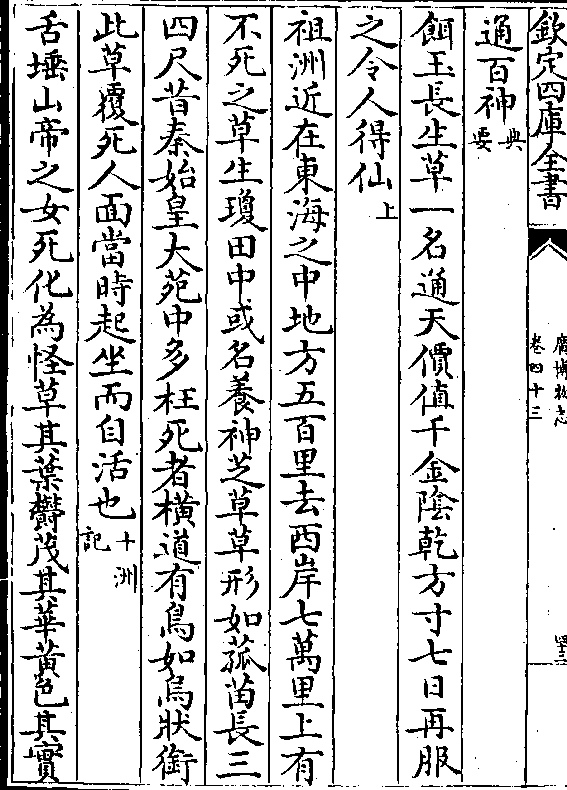 欽定四庫全書
廣博物志
卷四十三
通百神典要
餌玉長生草一名通天價值千金陰乾方寸七日再服
之令人得仙上
祖洲近在東海之中地方五百里去西岸七萬里上有
不死之草生瓊田中或名養神芝草草形如菰苗長三
四尺昔秦始皇大苑中多枉死者橫道有鳥如烏狀銜
此草覆死人面當時起坐而自活也十洲記
舌埵山帝之女死化為怪草其葉鬱茂其華黃色其實